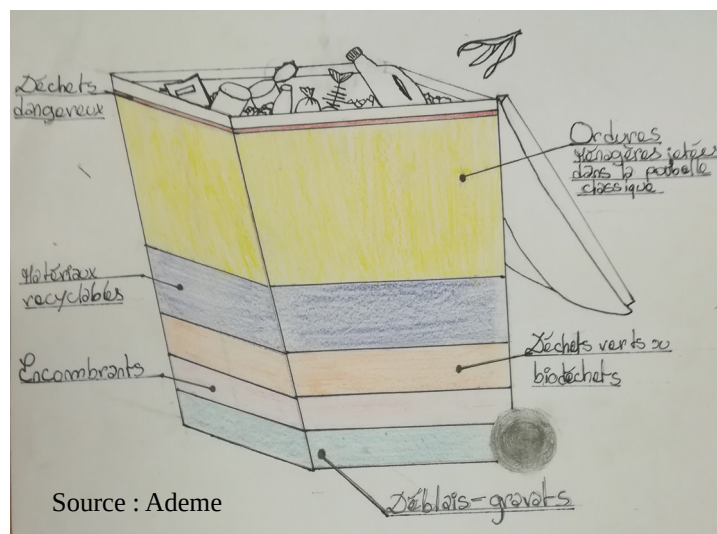 Déchets
dangereux
Ordures
Ménagères jetées
dans la poubelle
classique
Matériaux
recyclables
Déchets verts ou
biodéchets
Encombrants
Déblais-gravats
Source : Ademe